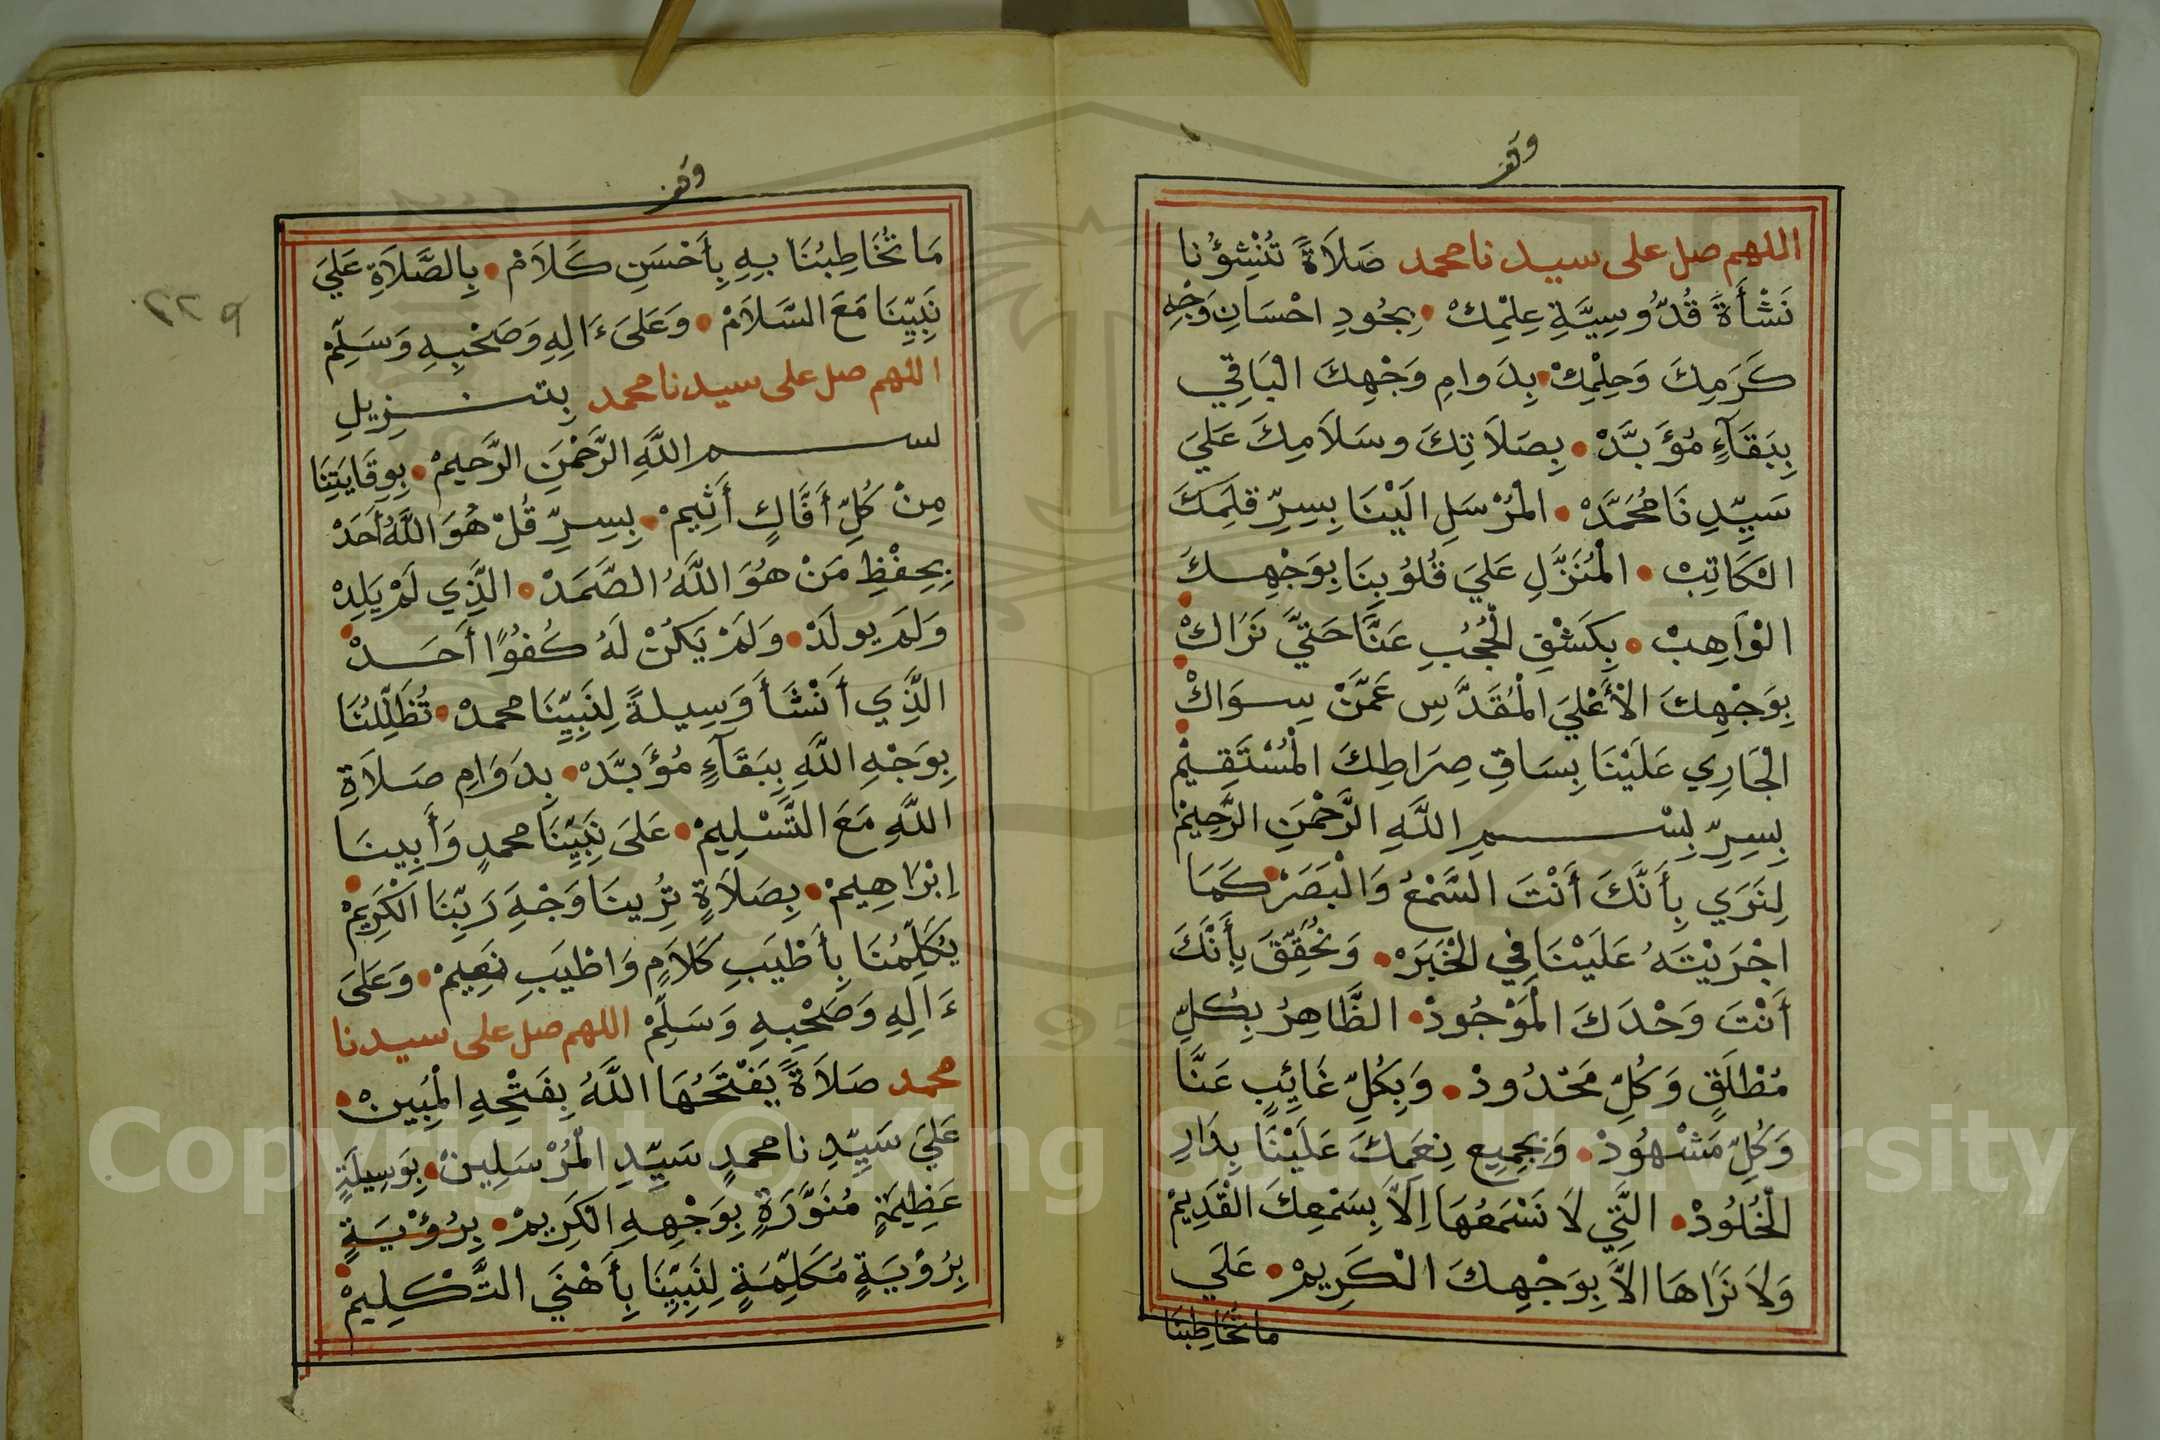 وقف
اللهم صل على سيدنا محمد صَلَاةً تُنْشِؤُنا
نَشْأَةً قُدُّوسِيَّةِ عِلْمِكْ • بِجُودِ احْسَانِ وَجْهِ
كَرَمِكَ وَحِلْمِكْ • بِدَوامِ وَجْهِكَ الْبَاقِي
بِبَقَآءٍ مُؤَبَّدْ • بِصَلَاتِكَ وسَلَامِكَ عَلَيَ
سَيِّدِنَا مُحَمَّدْ • الْمُرْسَلِ الَيْنَا بِسِرِّ قَلَمِكَ
الْكَاتِبْ • الْمُنَزَّلِ عَلَيَ قُلُوُبِنَا بِوَجْهِكَ •
الْوَاهِبْ • بِكَشْفِ الْحُجُبِ عَنَّا حَتَّيَ نَرَاكْ •
بِوَجْهِكَ الْأَعْلَيَ الْمُقَدَّسِ عَمَّنْ سِوَاكْ •
الْجَارِي عَلَيْنَا بِسَاقِ صِرَاطِكَ الْمُسْتَقِيمْ
بِسِرِّ بِسْمِ اللَّهِ الرَّحْمَنِ الرَّحِيمْ
لِنَرَي بِأَنَّكَ أَنْتَ السَّمْعُ وَالْبَصَرْ • كَمَا
اجْرَيْتَهُ عَلَيْنَا فِي الْخَبَرْ • وَنُحَقِّقَ بِأَنَّكَ
أَنْتَ وَحْدَكَ الْمَوْجُودْ • الظَّاهِرُ بِكُلِّ
مُطْلَقٍ وَكُلِّ مَحْدُودْ • وَبِكُلِّ غَائِبٍ عَنَّا
وَكُلِّ مَشْهُودْ • وَبِجَمِيعِ نِعَمِكَ عَلَيْنَا بِدَارِ
الْخُلُودْ • الَّتِي لَا نَسْمَعُهَا اِلَّا بِسَمْعِكَ الْقَدِيمْ
وَلَا نَرَاهَا الَّا بِوَجْهِكَ الْكَرِيمْ • عَلَي
ما تُخَاطِبُنَا
وقف
مَا تُخَاطِبُنَا بِهِ بِأَحْسَنِ كَلَامْ • بِالصَّلَاةِ عَلَيَ
نَبِيِّنَا مَعَ السَّلَامْ • وَعَلَىَ ءَالِهِ وَصَحْبِهِ وَسَلِّمْ
اللهم صل على سيدنا محمد بِتنزِيلِ
بسم اللَّهِ الرَّحْمَنِ الرَّحِيمْ • بِوِقَايَتِنَا
مِنْ كُلِّ أَفَّاكٍ أَثِيمْ • بِسِرِّ قُلْ هُوَ اللَّهُ أَحَدْ
بِحِفْظِ مَنْ هُوَ اللَّهُ الصَّمَدْ • الَّذِي لَمْ يَلِدْ •
وَلَمْ يولَدْ • وَلَمْ يَكُنْ لَهُ كُفُوًا أَحَدْ
الَّذِي أَنْشَأَ وَسِيلةً لِنَبِيِّنَا محمدْ • تُظَلِّلُنَا
بِوَجْهِ اللَّهِ بِبَقَآءٍ مُؤَبَّدْ • بِدَوَامِ صَلَاةِ
اللَّهِ مَعَ التَّسْلِيمْ • عَلَىَ نَبِيِّنَا محمدٍ وَأَبِينَا
اِبْرَاهِيمْ • بِصَلَاةٍ تُرِينَا وَجْهَ رَبِّنَا الْكَرِيمْ •
يُكَلِّمُنَا بِأَطْيَبِ كَلَامٍ وَاطْيَبِ نَعِيمْ • وَعَلَىَ
ءَالِهِ وَصَحْبِهِ وَسَلِّمْ اللهم صل على سيدنا
محمد صَلَاةً يَفْتَحُهَا اللَّهُ بِفَتْحِهِ الْمُبِينْ •
عَلَيَ سَيِّدِنا محمدٍ سَيِّدِ الْمُرْسَلِينْ • بِوَسِيلَةٍ
عَظِيمَةٍ مُنَوَّرَةٍ بِوَجْهِهِ الْكَرِيمْ • بِرُؤْيَةٍ
بِرُؤْيَةٍ مُكَلِّمَةٍ لِنَبِيِّنَا بِأَهْنَي التَّكْلِيمْ •
٢٢٩
Copyright © King Saud University